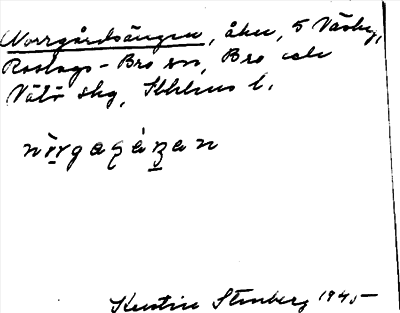 Norrgårdsängen, åker, 5 Väsby,
Roslags-Bro sn, Bro och
Vätö skg, Sthlms l.
Kerstin Stenberg 1945